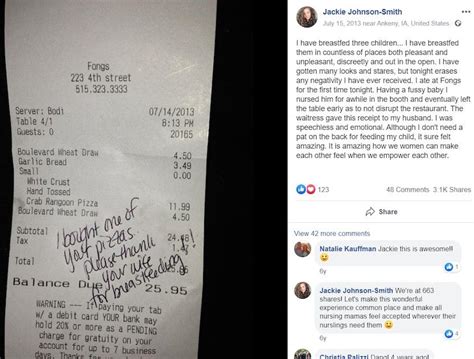 Fongs
223 4th street
515.323.3333
Server: Bodi 07/14/2013
Table 4/1 8:13 PM
Guests: 0 20165
Boulevard Wheat Draw 4.50
Garlic Bread 3.49
Small 0.00
White Crust
Hand Tossed
Crab Rangoon Pizza 11.99
Boulevard Wheat Draw 4.50
Subtotal
Tax
Total
Balance Due 25.95
I bought one of
your pizzas.
please thank
your wife
for breastfeeding
WARNING --- If paying your tab
w/ a debit card YOUR bank may
hold 20% or more as a PENDING
charge for gratuity on your
account for up to 7 business
Jackie Johnson-Smith
July 15, 2013 near Ankeny, IA, United States
I have breastfed three children... I have breastfed
them in countless of places both pleasant and
unpleasant, discreetly and out in the open. I have
gotten many looks and stares, but tonight erases
any negativity I have ever received. I ate at Fongs
for the first time tonight. Having a fussy baby I
nursed him for awhile in the booth and eventually left
the table early as to not disrupt the restaurant. The
waitress gave this receipt to my husband. I was
speechless and emotional. Although I don't need a
pat on the back for feeding my child, it sure felt
amazing. It is amazing how we women can make
each other feel when we empower each other.
123 48 Comments 3.1K Shares
Share
View 42 more comments
Natalie Kauffman Jackie this is awesome!!!
6y 1
Jackie Johnson-Smith We're at 663
shares! Let's make this wonderful
experience common place and make all
nursing mamas feel accepted wherever their
nurslings need them!
6y 1